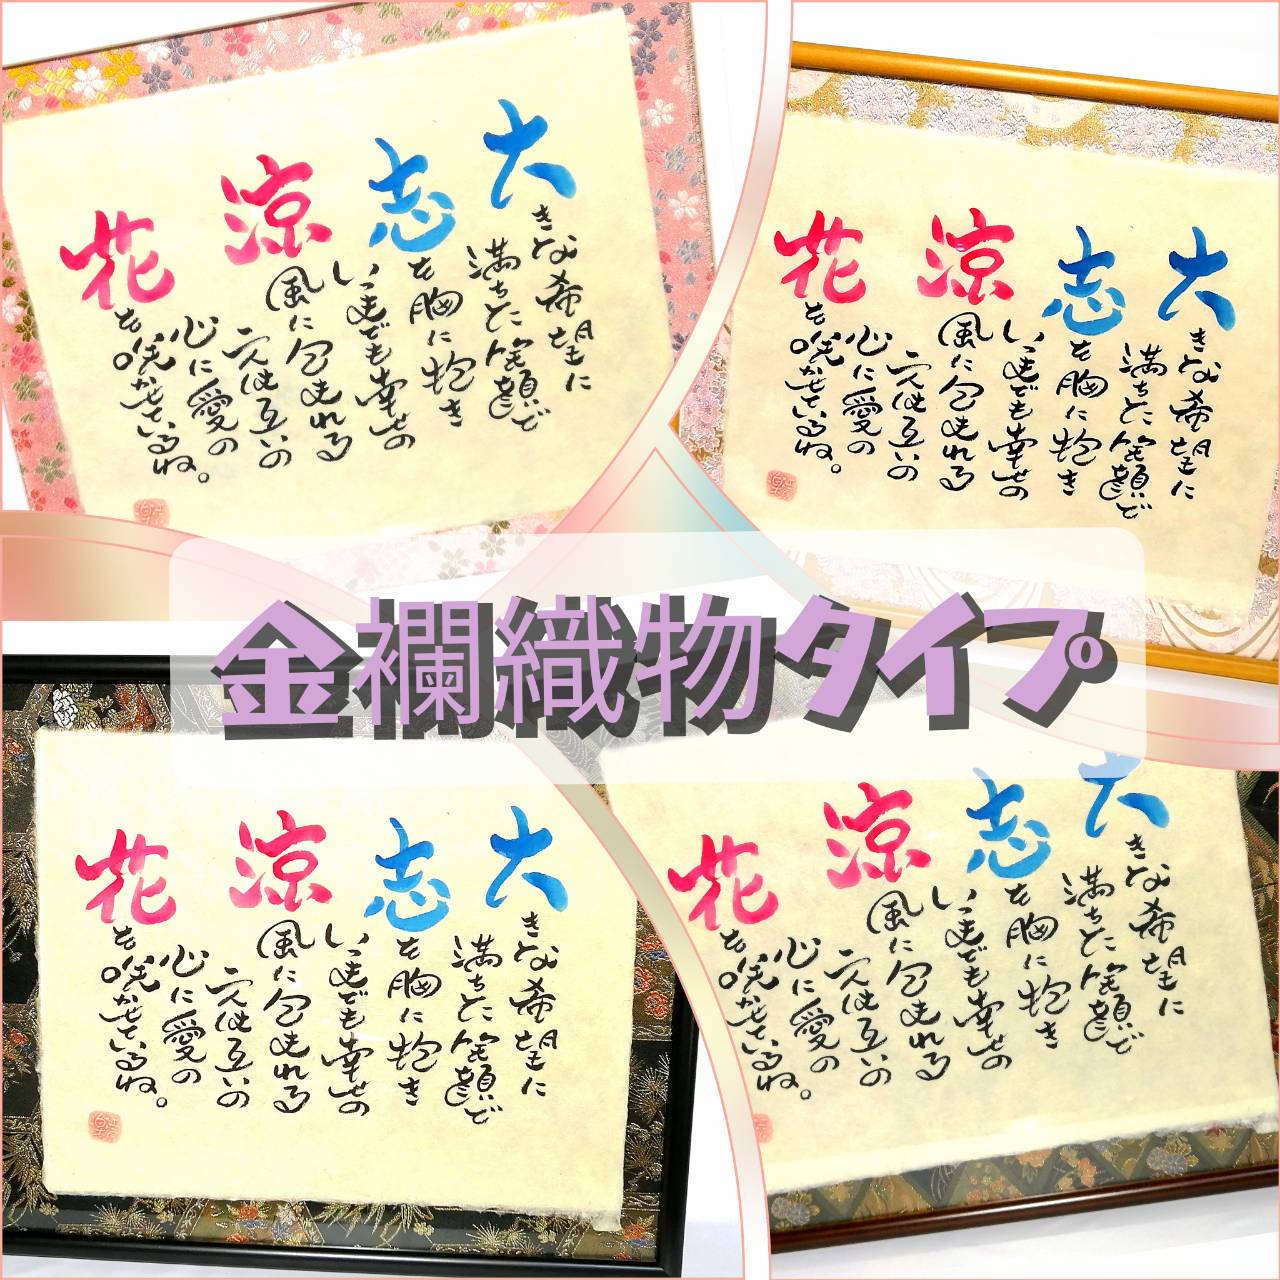 大きな希望に
満ちた笑顔で
志を胸に抱き
いつまでも幸せの
涼風に包まれる
二人は互いの
心に愛の
花を咲かせているね。
大きな希望に
満ちた笑顔で
志を胸に抱き
いつまでも幸せの
涼風に包まれる
二人は互いの
心に愛の
花を咲かせているね。
金襴織物タイプ
大きな希望に
満ちた笑顔で
志を胸に抱き
いつまでも幸せの
涼風に包まれる
二人は互いの
心に愛の
花を咲かせているね。
大きな希望に
満ちた笑顔で
志を胸に抱き
いつまでも幸せの
涼風に包まれる
二人は互いの
心に愛の
花を咲かせているね。